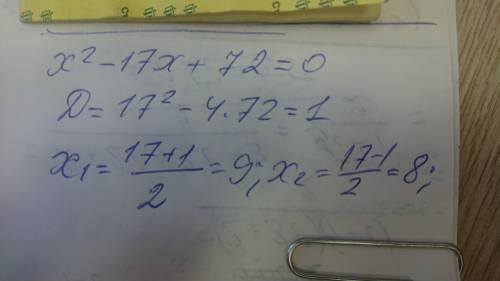 x² - 17x + 72 = 0
D = 17² - 4·72 = 1
x₁ = (17+1)/2 = 9; x₂ = (17-1)/2 = 8;